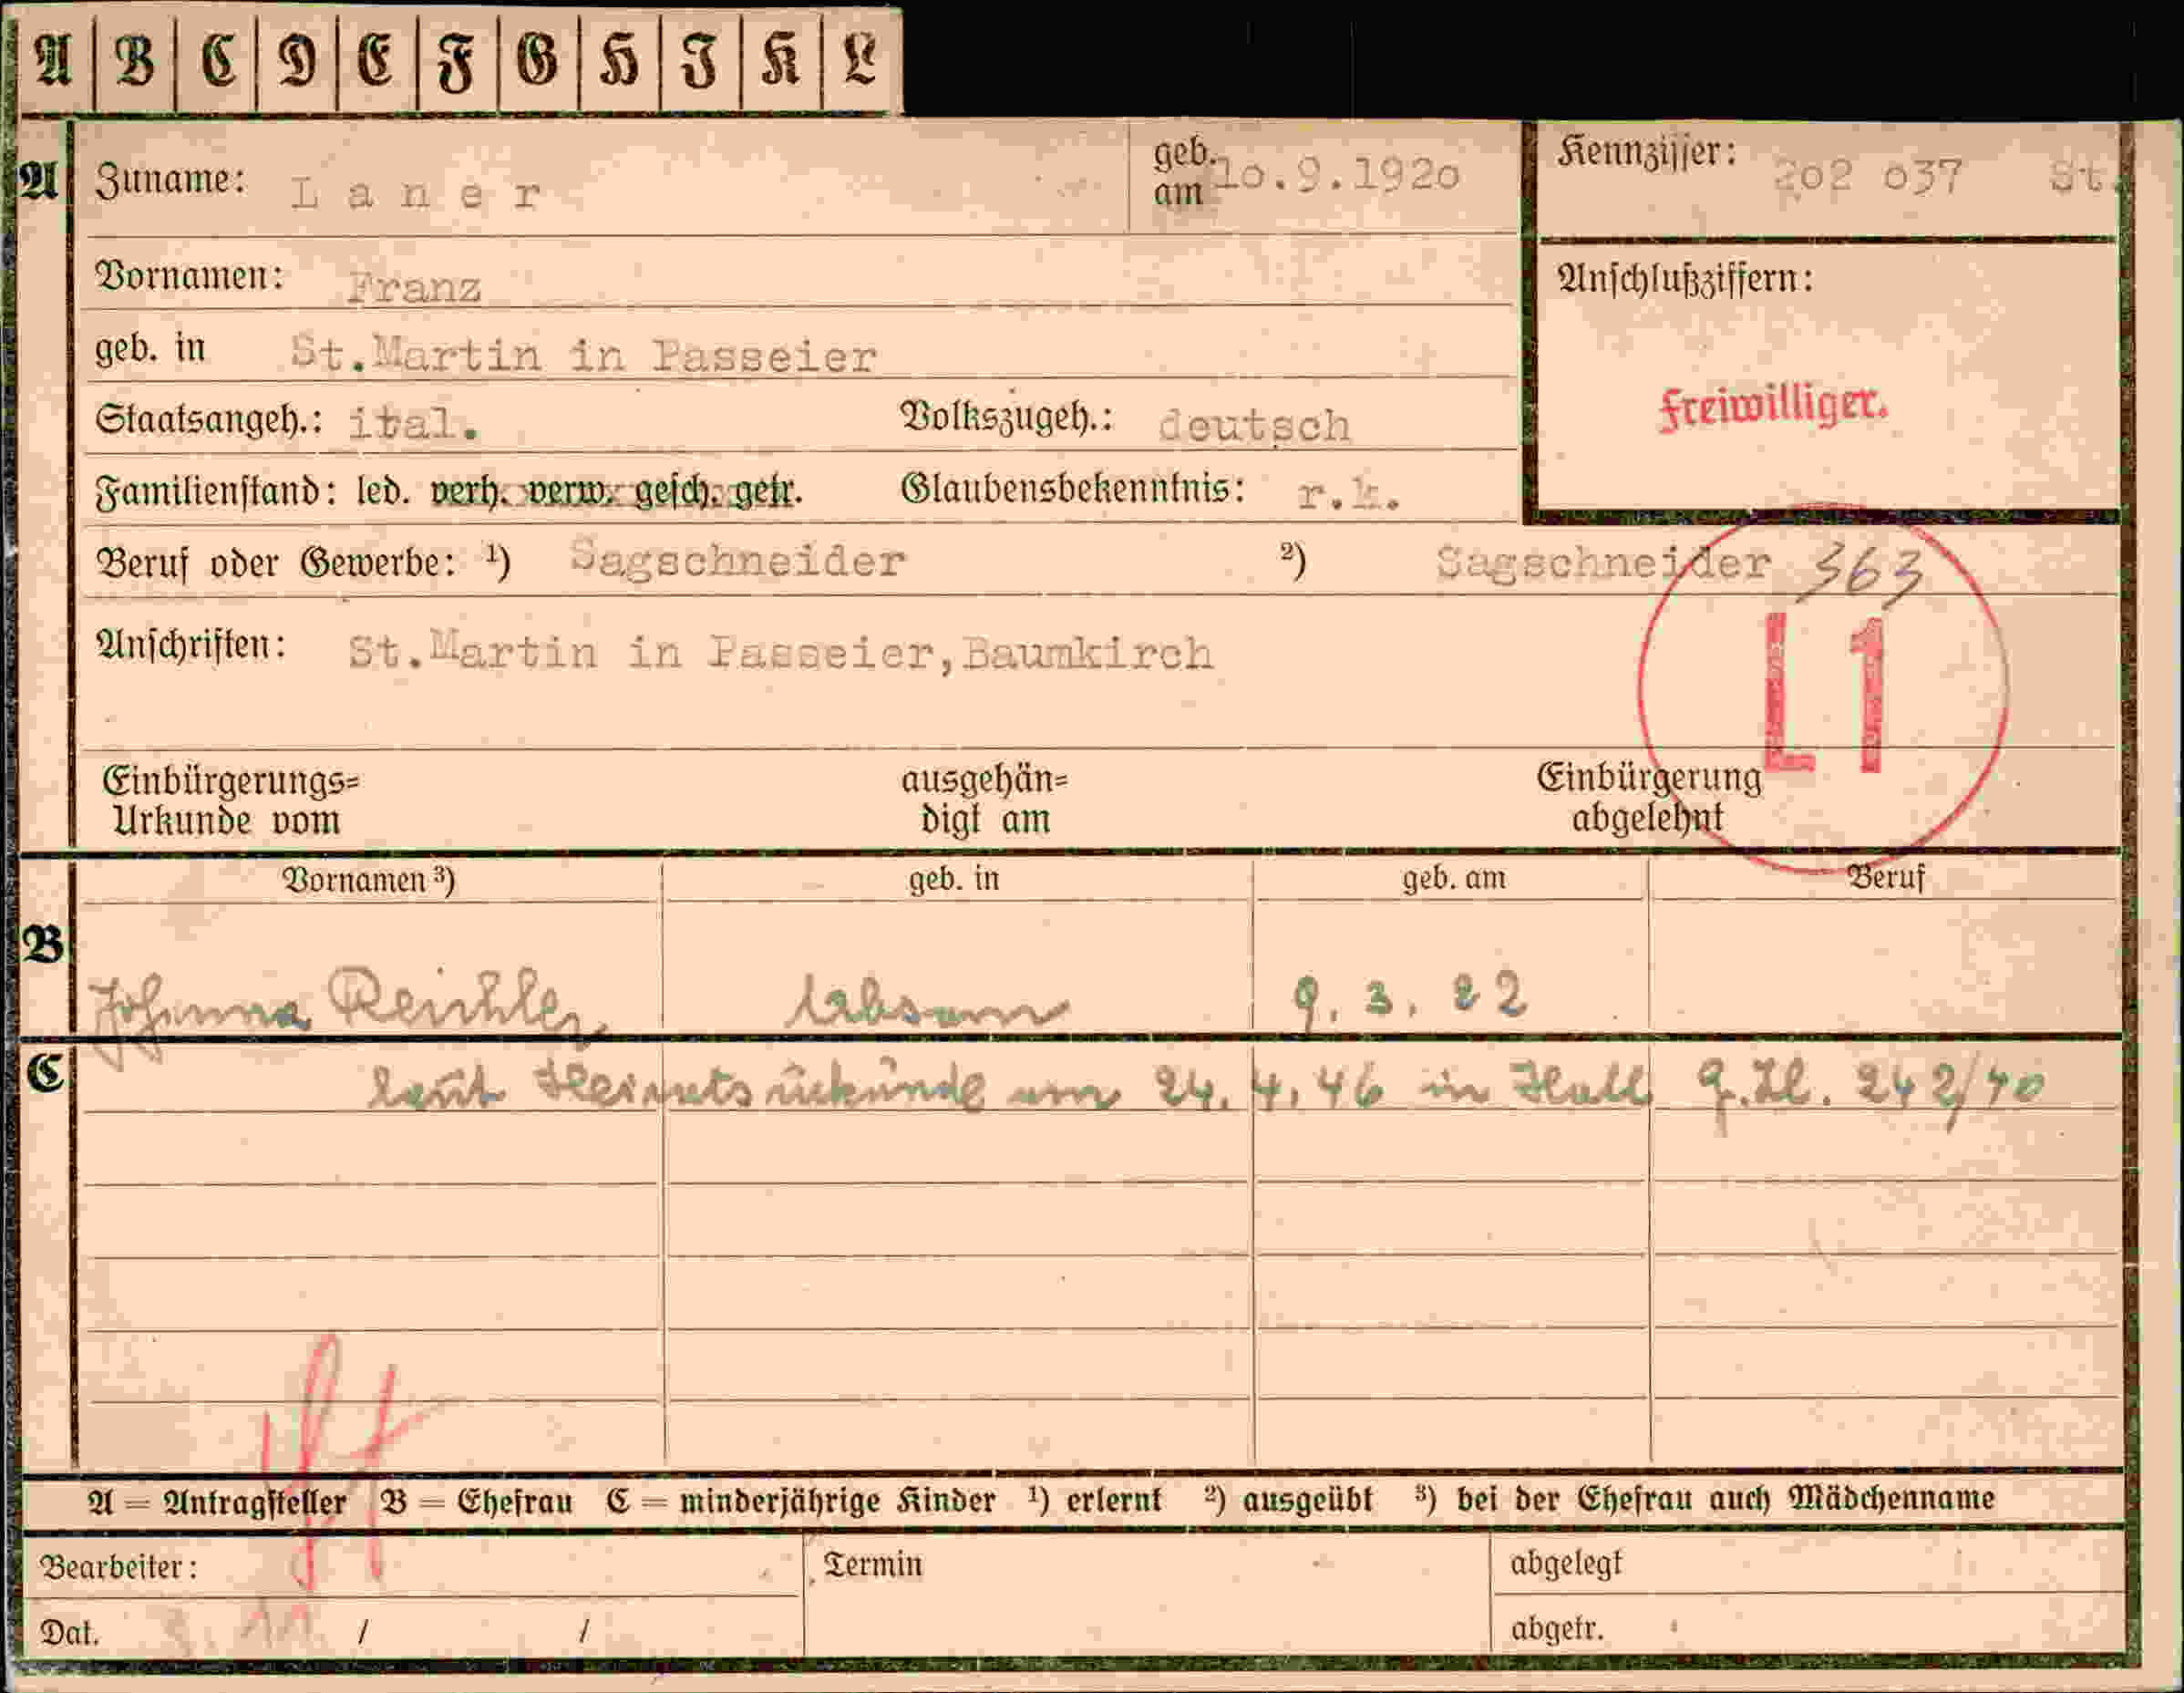 A B C D E F G H J K L
A Zuname: Laner geb. am 10.9.1920 Kennziffer: 202 037 St.
Vornamen: Franz Anschlußziffern:
geb. in St.Martin in Passeier
Freiwilliger.
Staatsangeh.: ital. Volkszugeh.: deutsch
Familienstand: led. verh. verw. gesch. getr. Glaubensbekenntnis: r.k.
Beruf oder Gewerbe: ¹) Sagschneider ²) Sagschneider 363
Anschriften: St.Martin in Passeier,Baumkirch
L1
Einbürgerungs= ausgehän= Einbürgerung
Urkunde vom digt am abgelehnt
Vornamen ³) geb. in geb. am Beruf
B
Johanna Absam 9. 3. 22
C laut Heiratsurkunde vom 24. 4. 46 in Hall G.Zl. 242/40
A = Antragsteller B = Ehefrau C = minderjährige Kinder ¹) erlernt ²) ausgeübt ³) bei der Ehefrau auch Mädchenname
Bearbeiter: Termin abgelegt
Dat. / / abgetr.